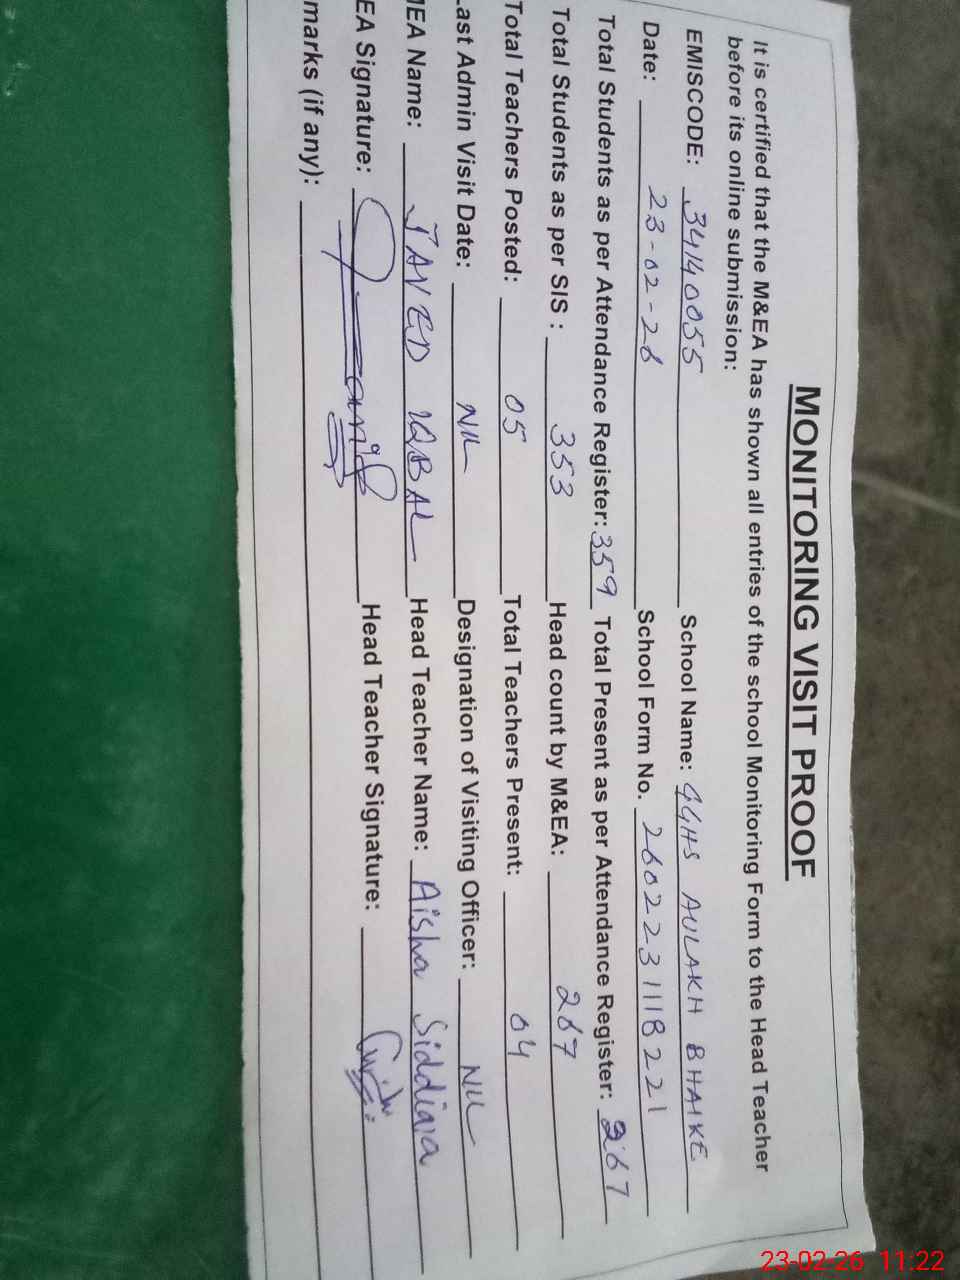 MONITORING VISIT PROOF
It is certified that the M&EA has shown all entries of the school Monitoring Form to the Head Teacher
before its online submission:
EMISCODE: 34140055 School Name: GGHS AULAKH BHAIKE
Date: 23-02-26 School Form No. 2602231118221
Total Students as per Attendance Register: 359 Total Present as per Attendance Register: 267
Total Students as per SIS : 353 Head count by M&EA: 267
Total Teachers Posted: 05 Total Teachers Present: 04
Last Admin Visit Date: NIL Designation of Visiting Officer: NIL
EA Name: JAVED IQBAL Head Teacher Name: Aisha Siddiqa
EA Signature: Head Teacher Signature:
marks (if any):
23-02-26 11:22